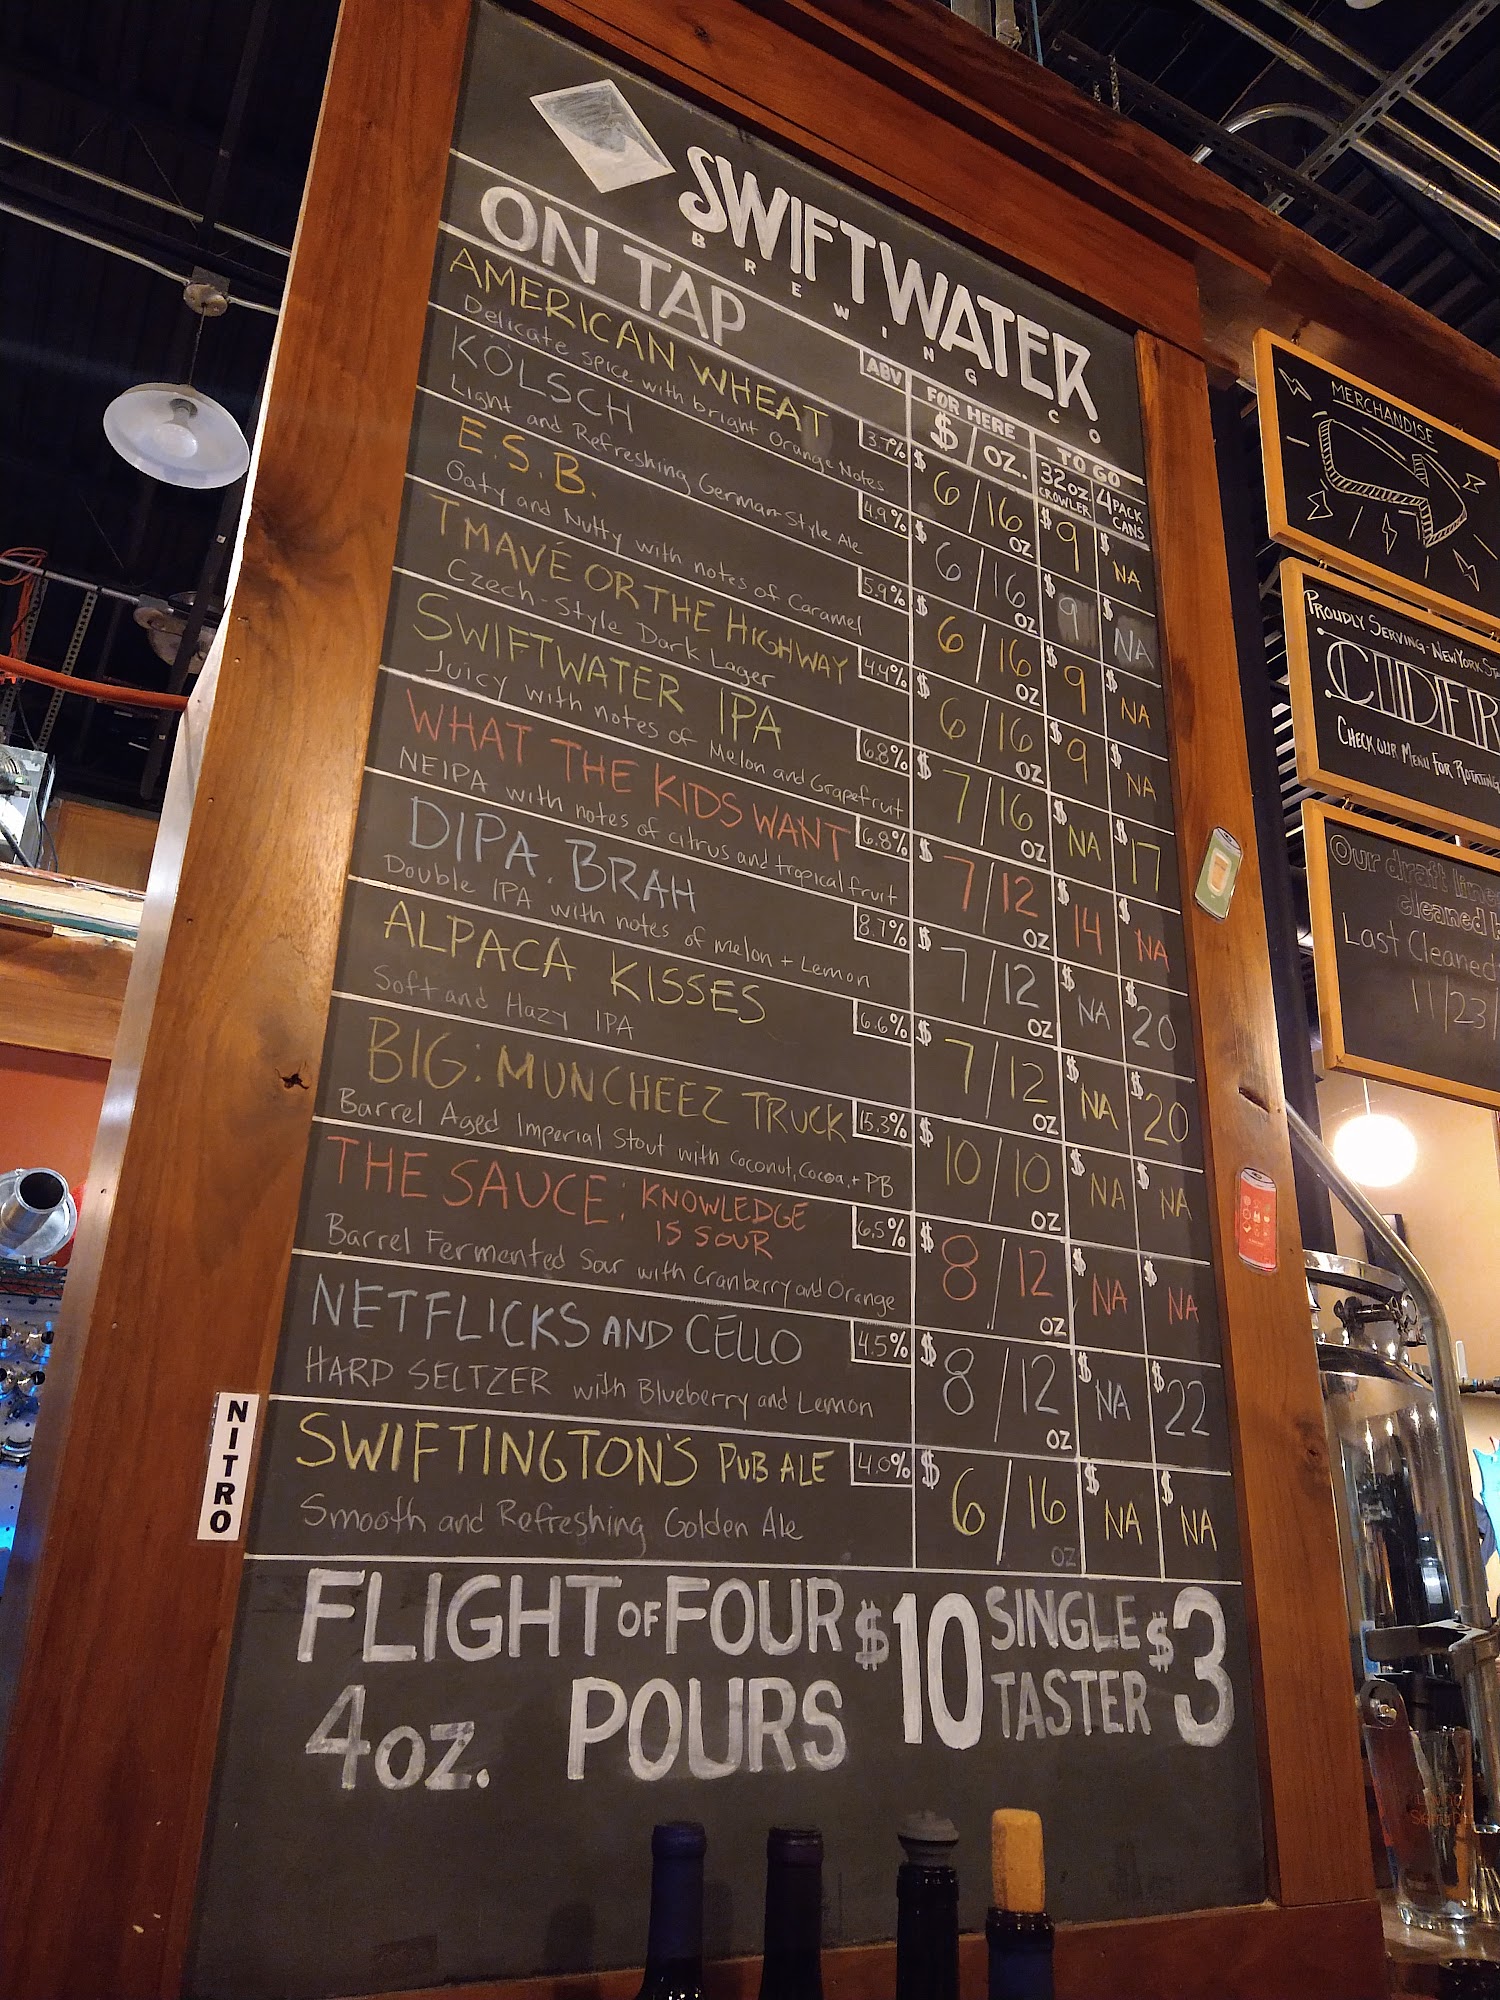 SWIFTWATER
BREWING CO
ON TAP
ABV
FOR HERE
$/OZ.
TO GO
32oz CROWLER
4 PACK CANS
AMERICAN WHEAT 3.7% $6/16 OZ $9 $NA
Delicate spice with bright Orange Notes
KÖLSCH 4.9% $6/16 OZ $9 $NA
Light and Refreshing German-Style Ale
E.S.B. 5.9% $6/16 OZ $9 $NA
Oaty and Nutty with notes of Caramel
TMAVÉ OR THE HIGHWAY 4.4% $6/16 OZ $9 $NA
Czech-Style Dark Lager
SWIFTWATER IPA 6.8% $7/16 OZ $NA $17
Juicy with notes of Melon and Grapefruit
WHAT THE KIDS WANT 6.8% $7/12 OZ $14 $NA
NEIPA with notes of citrus and tropical fruit
DIPA. BRAH 8.7% $7/12 OZ $NA $20
Double IPA with notes of melon + Lemon
ALPACA KISSES 6.6% $7/12 OZ $NA $20
Soft and Hazy IPA
BIG: MUNCHEEZ TRUCK 15.3% $10/10 OZ $NA $NA
Barrel Aged Imperial Stout with Coconut, Cocoa, + PB
THE SAUCE: KNOWLEDGE IS SOUR 6.5% $8/12 OZ $NA $NA
Barrel Fermented Sour with Cranberry and Orange
NETFLICKS AND CELLO 4.5% $8/12 OZ $NA $22
HARD SELTZER with Blueberry and Lemon
NITRO
SWIFTINGTON'S PUB ALE 4.0% $6/16 OZ $NA $NA
Smooth and Refreshing Golden Ale
FLIGHT OF FOUR $10 SINGLE $3
4oz. POURS TASTER
MERCHANDISE
PROUDLY SERVING NEW YORK
CIDER
CHECK OUR MENU FOR ROTATING
Our draft lines
cleaned
Last Cleaned
11/23/